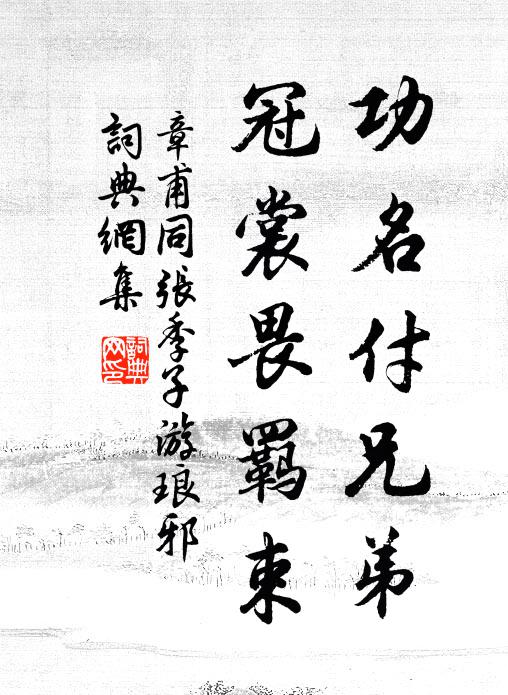 功名付兄弟
冠裳畏羈束
章甫同張季子游琅邪
詞典網集
詞典網印